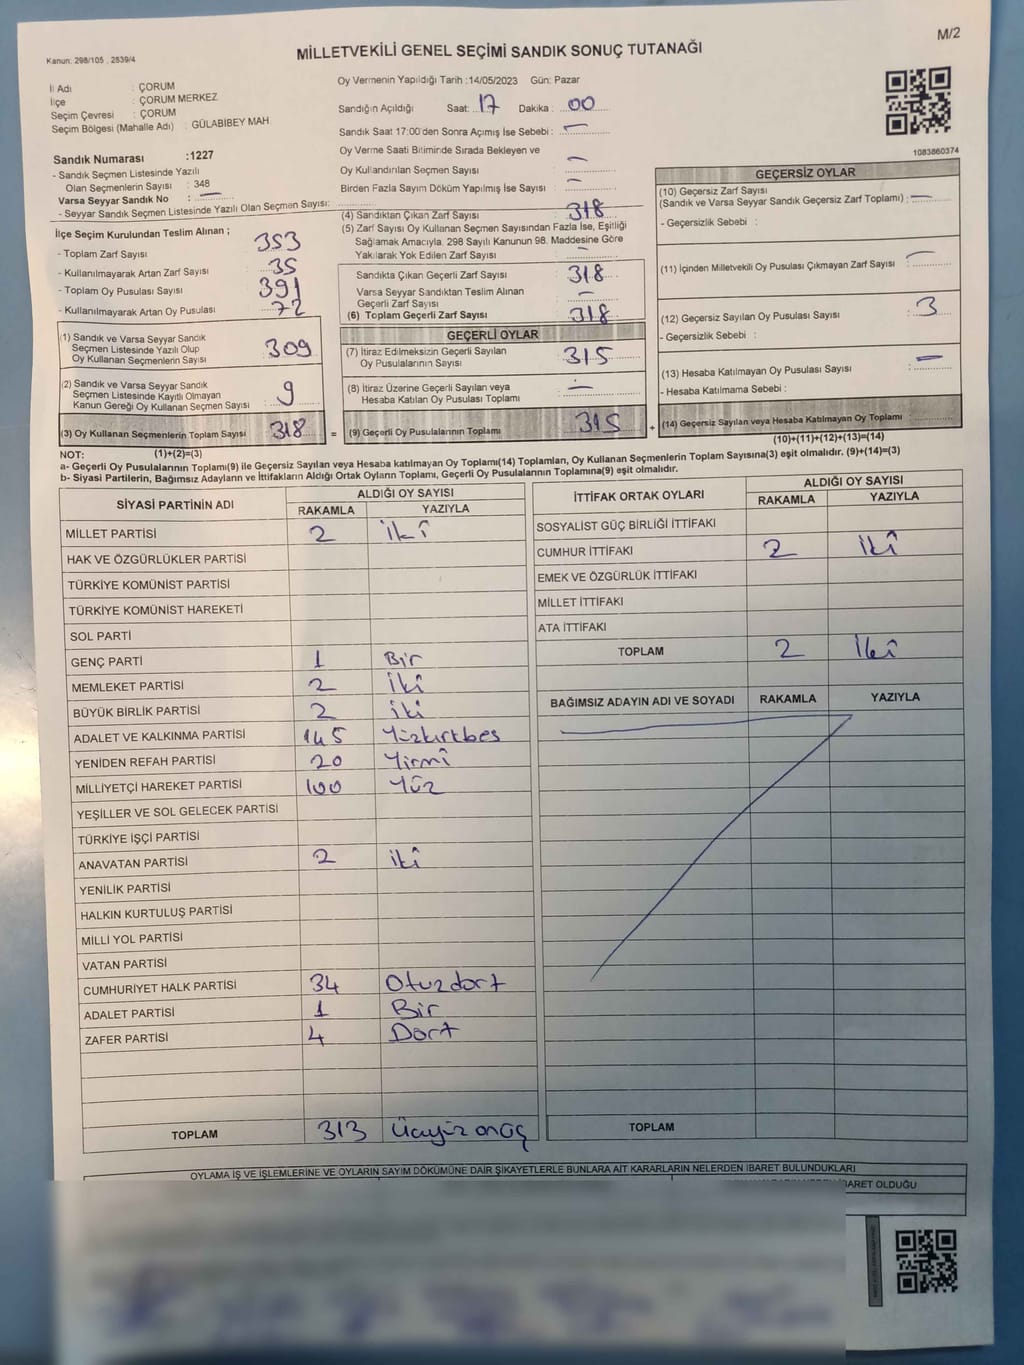 M/2
Kanun: 298/105 , 2839/4
MİLLETVEKİLİ GENEL SEÇİMİ SANDIK SONUÇ TUTANAĞI
İl Adı : ÇORUM
İlçe : ÇORUM MERKEZ
Seçim Çevresi : ÇORUM
Seçim Bölgesi (Mahalle Adı) : GÜLABİBEY MAH.
Oy Vermenin Yapıldığı Tarih :14/05/2023 Gün: Pazar
Sandığın Açıldığı Saat: 17 Dakika : 00
Sandık Saat 17:00'den Sonra Açımış İse Sebebi : —
Oy Verme Saati Bitiminde Sırada Bekleyen ve
Oy Kullandırılan Seçmen Sayısı —
Birden Fazla Sayım Döküm Yapılmış İse Sayısı : —
1083860374
Sandık Numarası :1227
- Sandık Seçmen Listesinde Yazılı
Olan Seçmenlerin Sayısı : 348
Varsa Seyyar Sandık No : —
- Seyyar Sandık Seçmen Listesinde Yazılı Olan Seçmen Sayısı:
İlçe Seçim Kurulundan Teslim Alınan ;
- Toplam Zarf Sayısı 353
- Kullanılmayarak Artan Zarf Sayısı 35
- Toplam Oy Pusulası Sayısı 391
- Kullanılmayarak Artan Oy Pusulası 72
(1) Sandık ve Varsa Seyyar Sandık
Seçmen Listesinde Yazılı Olup
Oy Kullanan Seçmenlerin Sayısı 309
(2) Sandık ve Varsa Seyyar Sandık
Seçmen Listesinde Kayıtlı Olmayan
Kanun Gereği Oy Kullanan Seçmen Sayısı 9
(3) Oy Kullanan Seçmenlerin Toplam Sayısı 318 =
(4) Sandıktan Çıkan Zarf Sayısı 318
(5) Zarf Sayısı Oy Kullanan Seçmen Sayısından Fazla İse, Eşitliği
Sağlamak Amacıyla, 298 Sayılı Kanunun 98. Maddesine Göre
Yakılarak Yok Edilen Zarf Sayısı —
Sandıkta Çıkan Geçerli Zarf Sayısı 318
Varsa Seyyar Sandıktan Teslim Alınan
Geçerli Zarf Sayısı —
(6) Toplam Geçerli Zarf Sayısı 318
GEÇERLİ OYLAR
(7) İtiraz Edilmeksizin Geçerli Sayılan
Oy Pusulalarının Sayısı 315
(8) İtiraz Üzerine Geçerli Sayılan veya
Hesaba Katılan Oy Pusulası Toplamı —
(9) Geçerli Oy Pusulalarının Toplamı 315 +
GEÇERSİZ OYLAR
(10) Geçersiz Zarf Sayısı
(Sandık ve Varsa Seyyar Sandık Geçersiz Zarf Toplamı) : —
- Geçersizlik Sebebi :
(11) İçinden Milletvekili Oy Pusulası Çıkmayan Zarf Sayısı —
(12) Geçersiz Sayılan Oy Pusulası Sayısı : 3
- Geçersizlik Sebebi :
(13) Hesaba Katılmayan Oy Pusulası Sayısı : —
- Hesaba Katılmama Sebebi :
(14) Geçersiz Sayılan veya Hesaba Katılmayan Oy Toplamı
(10)+(11)+(12)+(13)=(14)
NOT: (1)+(2)=(3)
a- Geçerli Oy Pusulalarının Toplamı(9) ile Geçersiz Sayılan veya Hesaba katılmayan Oy Toplamı(14) Toplamları, Oy Kullanan Seçmenlerin Toplam Sayısına(3) eşit olmalıdır. (9)+(14)=(3)
b- Siyasi Partilerin, Bağımsız Adayların ve İttifakların Aldığı Ortak Oyların Toplamı, Geçerli Oy Pusulalarının Toplamına(9) eşit olmalıdır.
SİYASİ PARTİNİN ADI ALDIĞI OY SAYISI
RAKAMLA YAZIYLA
MİLLET PARTİSİ 2 İki
HAK VE ÖZGÜRLÜKLER PARTİSİ
TÜRKİYE KOMÜNİST PARTİSİ
TÜRKİYE KOMÜNİST HAREKETİ
SOL PARTİ
GENÇ PARTİ 1 Bir
MEMLEKET PARTİSİ 2 İki
BÜYÜK BİRLİK PARTİSİ 2 iki
ADALET VE KALKINMA PARTİSİ 145 Yüzkırkbes
YENİDEN REFAH PARTİSİ 20 Yirmi
MİLLİYETÇİ HAREKET PARTİSİ 100 Yüz
YEŞİLLER VE SOL GELECEK PARTİSİ
TÜRKİYE İŞÇİ PARTİSİ
ANAVATAN PARTİSİ 2 iki
YENİLİK PARTİSİ
HALKIN KURTULUŞ PARTİSİ
MİLLİ YOL PARTİSİ
VATAN PARTİSİ
CUMHURİYET HALK PARTİSİ 34 Otuzdort
ADALET PARTİSİ 1 Bir
ZAFER PARTİSİ 4 Dört
TOPLAM 313 Üçyüz onüç
İTTİFAK ORTAK OYLARI ALDIĞI OY SAYISI
RAKAMLA YAZIYLA
SOSYALİST GÜÇ BİRLİĞİ İTTİFAKI
CUMHUR İTTİFAKI 2 İki
EMEK VE ÖZGÜRLÜK İTTİFAKI
MİLLET İTTİFAKI
ATA İTTİFAKI
TOPLAM 2 İki
BAĞIMSIZ ADAYIN ADI VE SOYADI RAKAMLA YAZIYLA
TOPLAM
OYLAMA İŞ VE İŞLEMLERİNE VE OYLARIN SAYIM DÖKÜMÜNE DAİR ŞİKAYETLERLE BUNLARA AİT KARARLARIN NELERDEN İBARET BULUNDUKLARI
İBARET OLDUĞU